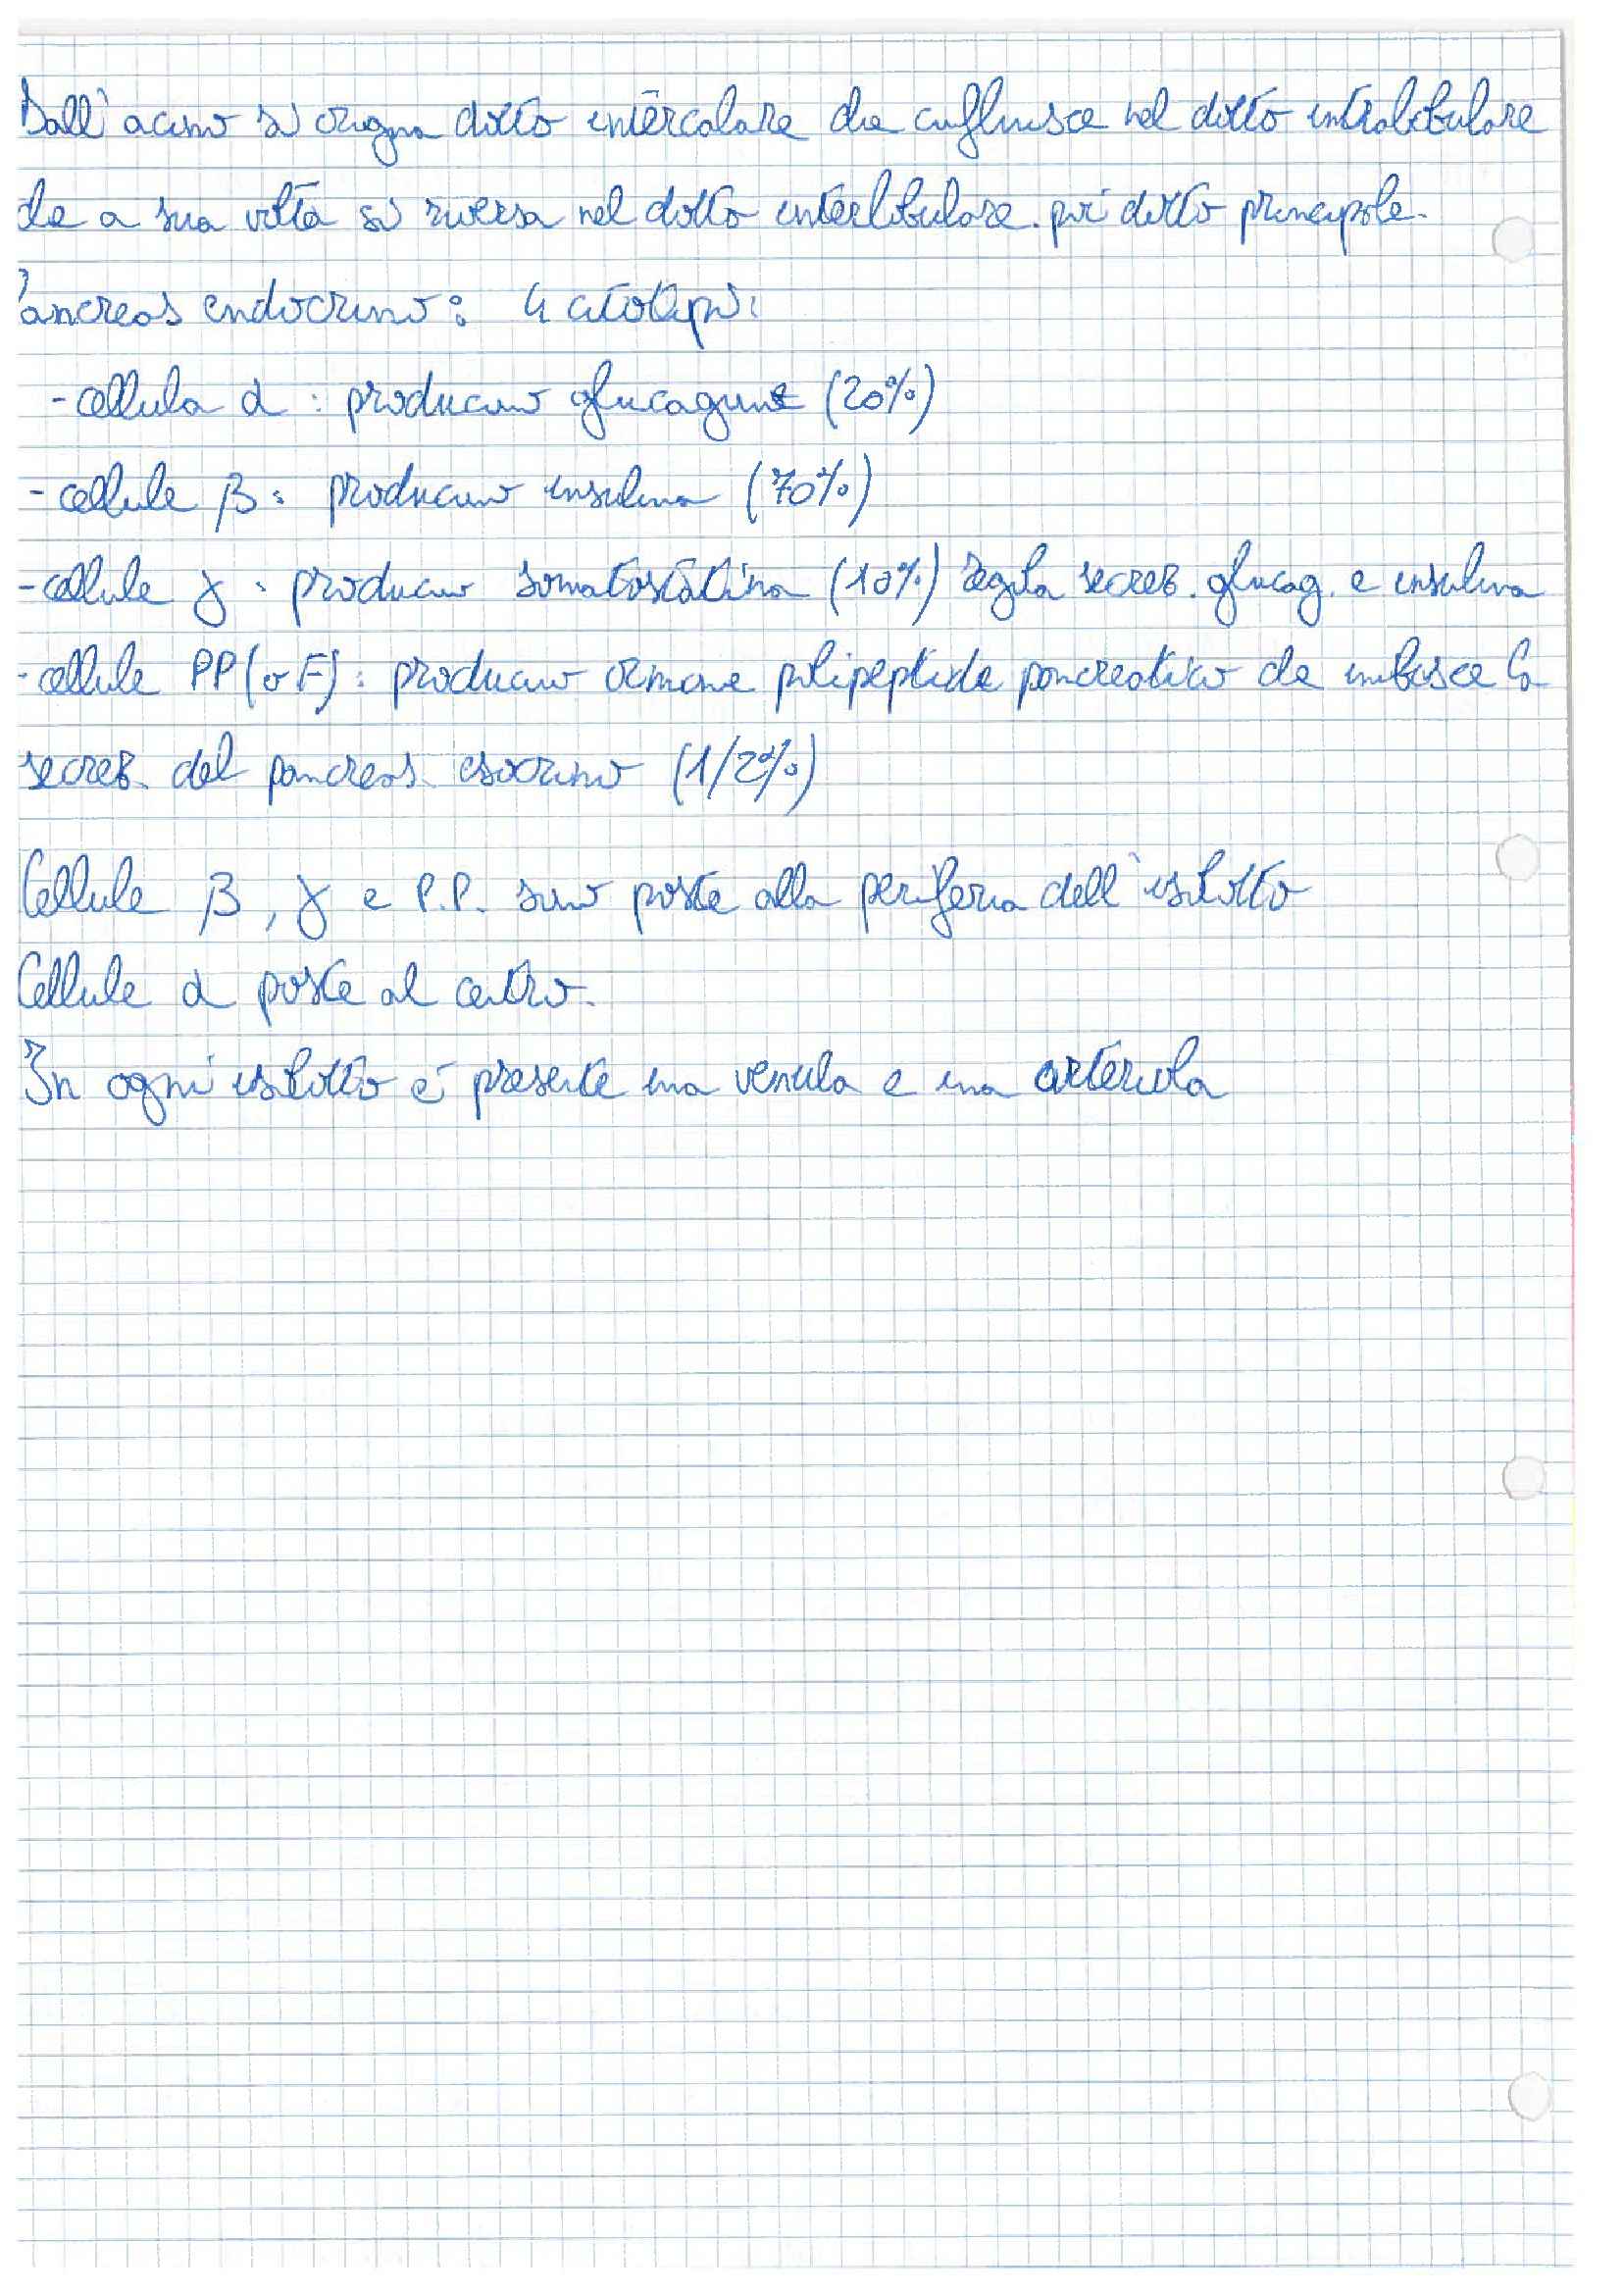 Dall'acino si origina dotto intercalare che confluisce nel dotto intralobulare
che a sua volta si riversa nel dotto interlobulare. poi dotto principale.
Pancreas endocrino: 4 citotipi:
- cellula α: producono glucagone (20%)
- cellule β: producono insulina (70%)
- cellule γ: producono somatostatina (10%) regola secrez. glucag. e insulina
- cellule PP (o F): producono ormone polipeptide pancreatico che inibisce la
secrez. del pancreas esocrino (1/2%)
Cellule β, γ e P.P. sono poste alla periferia dell'isolotto
Cellule α poste al centro.
In ogni isolotto è presente una venula e una arteriola